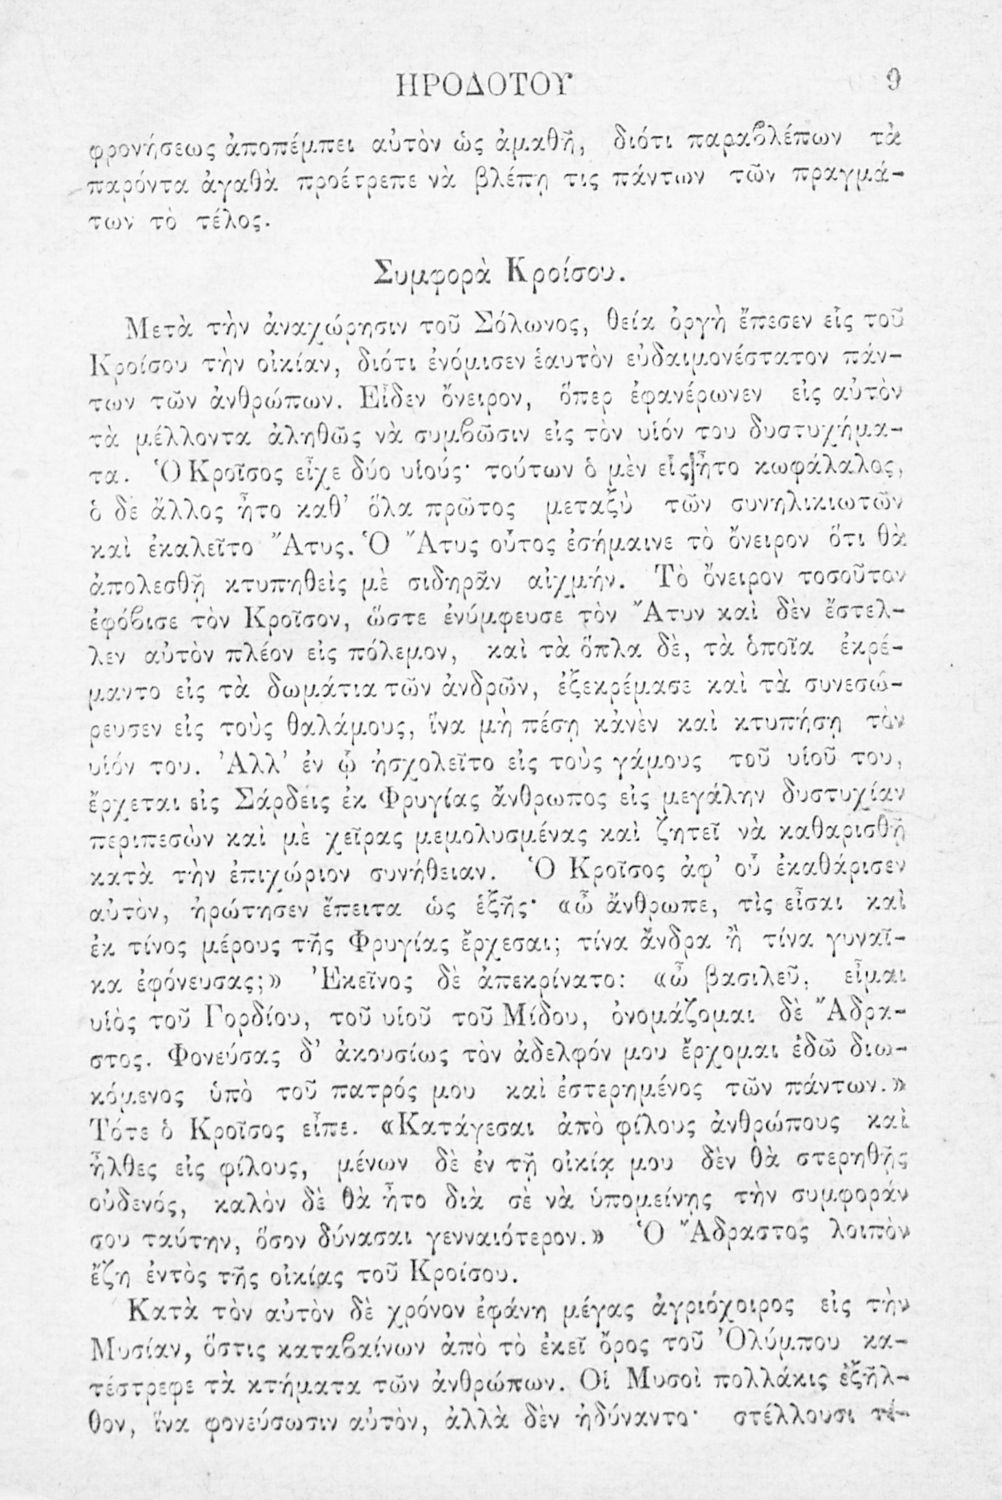 ΗΡΟΔΟΤΟΥ 9
φρονήσεως ἀποπέμπει αὐτὸν ὡς ἀμαθῆ, διότι παραβλέπων τὰ
παρόντα ἀγαθὰ προέτρεπε νὰ βλέπῃ τις πάντων τῶν πραγμά-
των τὸ τέλος.
Συμφορὰ Κροίσου.
Μετὰ τὴν ἀναχώρησιν τοῦ Σόλωνος, θεία ὀργὴ ἔπεσεν εἰς τοῦ
Κροίσου τὴν οἰκίαν, διότι ἐνόμισεν ἑαυτὸν εὐδαιμονέστατον πάν-
των τῶν ἀνθρώπων. Εἶδεν ὄνειρον, ὅπερ ἐφανέρωνεν εἰς αὐτὸν
τὰ μέλλοντα ἀληθῶς νὰ συμβῶσιν εἰς τὸν υἱόν του δυστυχήμα-
τα. Ὁ Κροῖσος εἶχε δύο υἱούς· τούτων ὁ μὲν εἷς ἦτο κωφάλαλος,
ὁ δὲ ἄλλος ἦτο καθ’ ὅλα πρῶτος μεταξὺ τῶν συνηλικιωτῶν
καὶ ἐκαλεῖτο Ἄτυς. Ὁ Ἄτυς οὗτος ἐσήμαινε τὸ ὄνειρον ὅτι θὰ
ἀπολεσθῇ κτυπηθεὶς μὲ σιδηρᾶν αἰχμήν. Τὸ ὄνειρον τοσοῦτον
ἐφόβισε τὸν Κροῖσον, ὥστε ἐνύμφευσε τὸν Ἄτυν καὶ δὲν ἔστελ-
λεν αὐτὸν πλέον εἰς πόλεμον, καὶ τὰ ὅπλα δὲ, τὰ ὁποῖα ἐκρέ-
μαντο εἰς τὰ δωμάτια τῶν ἀνδρῶν, ἐξεκρέμασε καὶ τὰ συνεσώ-
ρευσεν εἰς τοὺς θαλάμους, ἵνα μὴ πέσῃ κἀνὲν καὶ κτυπήσῃ τὸν
υἱόν του. Ἀλλ’ ἐν ᾧ ἠσχολεῖτο εἰς τοὺς γάμους τοῦ υἱοῦ του,
ἔρχεται εἰς Σάρδεις ἐκ Φρυγίας ἄνθρωπος εἰς μεγάλην δυστυχίαν
περιπεσὼν καὶ μὲ χεῖρας μεμολυσμένας καὶ ζητεῖ νὰ καθαρισθῇ
κατὰ τὴν ἐπιχώριον συνήθειαν. Ὁ Κροῖσος ἀφ’ οὗ ἐκαθάρισεν
αὐτὸν, ἠρώτησεν ἔπειτα ὡς ἑξῆς· «ὦ ἄνθρωπε, τὶς εἶσαι καὶ
ἐκ τίνος μέρους τῆς Φρυγίας ἔρχεσαι; τίνα ἄνδρα ἢ τίνα γυναῖ-
κα ἐφόνευσας;» Ἐκεῖνος δὲ ἀπεκρίνατο: «ὦ βασιλεῦ, εἶμαι
υἱὸς τοῦ Γορδίου, τοῦ υἱοῦ τοῦ Μίδου, ὀνομάζομαι δὲ Ἄδρα-
στος. Φονεύσας δ’ ἀκουσίως τὸν ἀδελφόν μου ἔρχομαι ἐδῶ διω-
κόμενος ὑπὸ τοῦ πατρός μου καὶ ἐστερημένος τῶν πάντων.»
Τότε ὁ Κροῖσος εἶπε. «Κατάγεσαι ἀπὸ φίλους ἀνθρώπους καὶ
ἦλθες εἰς φίλους, μένων δὲ ἐν τῇ οἰκίᾳ μου δὲν θὰ στερηθῇς
οὐδενός, καλὸν δὲ θὰ ἦτο διὰ σὲ νὰ ὑπομείνῃς τὴν συμφοράν
σου ταύτην, ὅσον δύνασαι γενναιότερον.» Ὁ Ἄδραστος λοιπὸν
ἔζη ἐντὸς τῆς οἰκίας τοῦ Κροίσου.
Κατὰ τὸν αὐτὸν δὲ χρόνον ἐφάνη μέγας ἀγριόχοιρος εἰς τὴν
Μυσίαν, ὅστις καταβαίνων ἀπὸ τὸ ἐκεῖ ὄρος τοῦ Ὀλύμπου κα-
τέστρεφε τὰ κτήματα τῶν ἀνθρώπων. Οἱ Μυσοὶ πολλάκις ἐξῆλ-
θον, ἵνα φονεύσωσιν αὐτὸν, ἀλλὰ δὲν ἠδύναντο· στέλλουσι